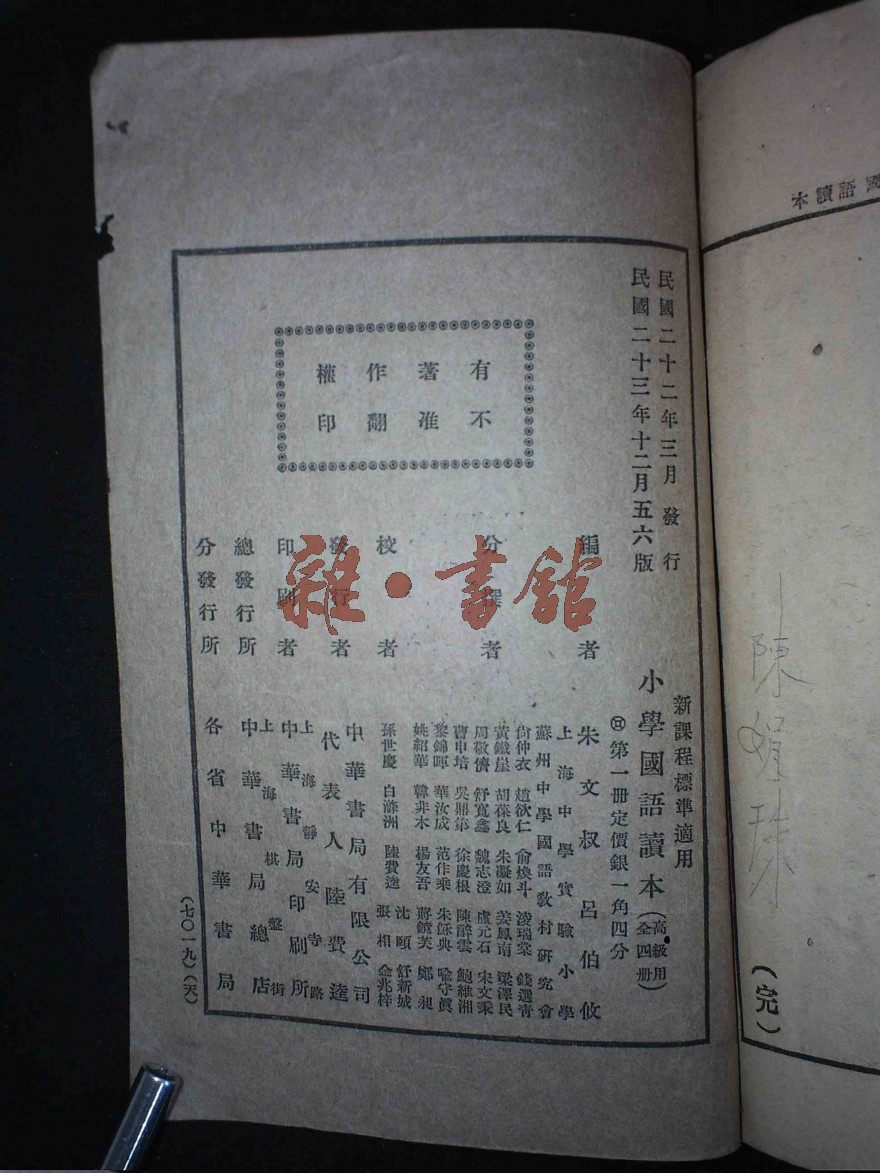 國語讀本
陳娟珠
(完)
民國二十二年三月發行
民國二十三年十二月五六版
新課程標準適用
小學國語讀本(高級用全四冊)
第一冊定價銀一角四分
有著作權
不准翻印
編者
朱文叔 呂伯攸
分撰者
上海中學實驗小學
蘇州中學國語教材研究會
尙仲衣 趙欲仁 俞煥斗 淩瑞棠 錢選青
黃鐵崖 胡葆良 朱凝如 姜鳳南 梁澤民
周敬儕 舒寬鑫 魏志澄 盧元石 宋文秉
曹中培 吳鼎第 徐慶根 陳醉雲 鮑維湘
校者
黎錦暉 華汝成 范作乘 朱穌典 喻守眞
姚紹華 韓非木 楊友吾 蔣鏡芙 鄭昶
孫世慶 白滌洲 陸費逵 沈頤 舒新城
張相 金兆梓
發行者
中華書局有限公司
代表人 陸費逵
印刷者
上海靜安寺路
中華書局印刷所
總發行所
上海棋盤街
中華書局總店
分發行所
各省中華書局
(七〇一九)(天)
雜·書館